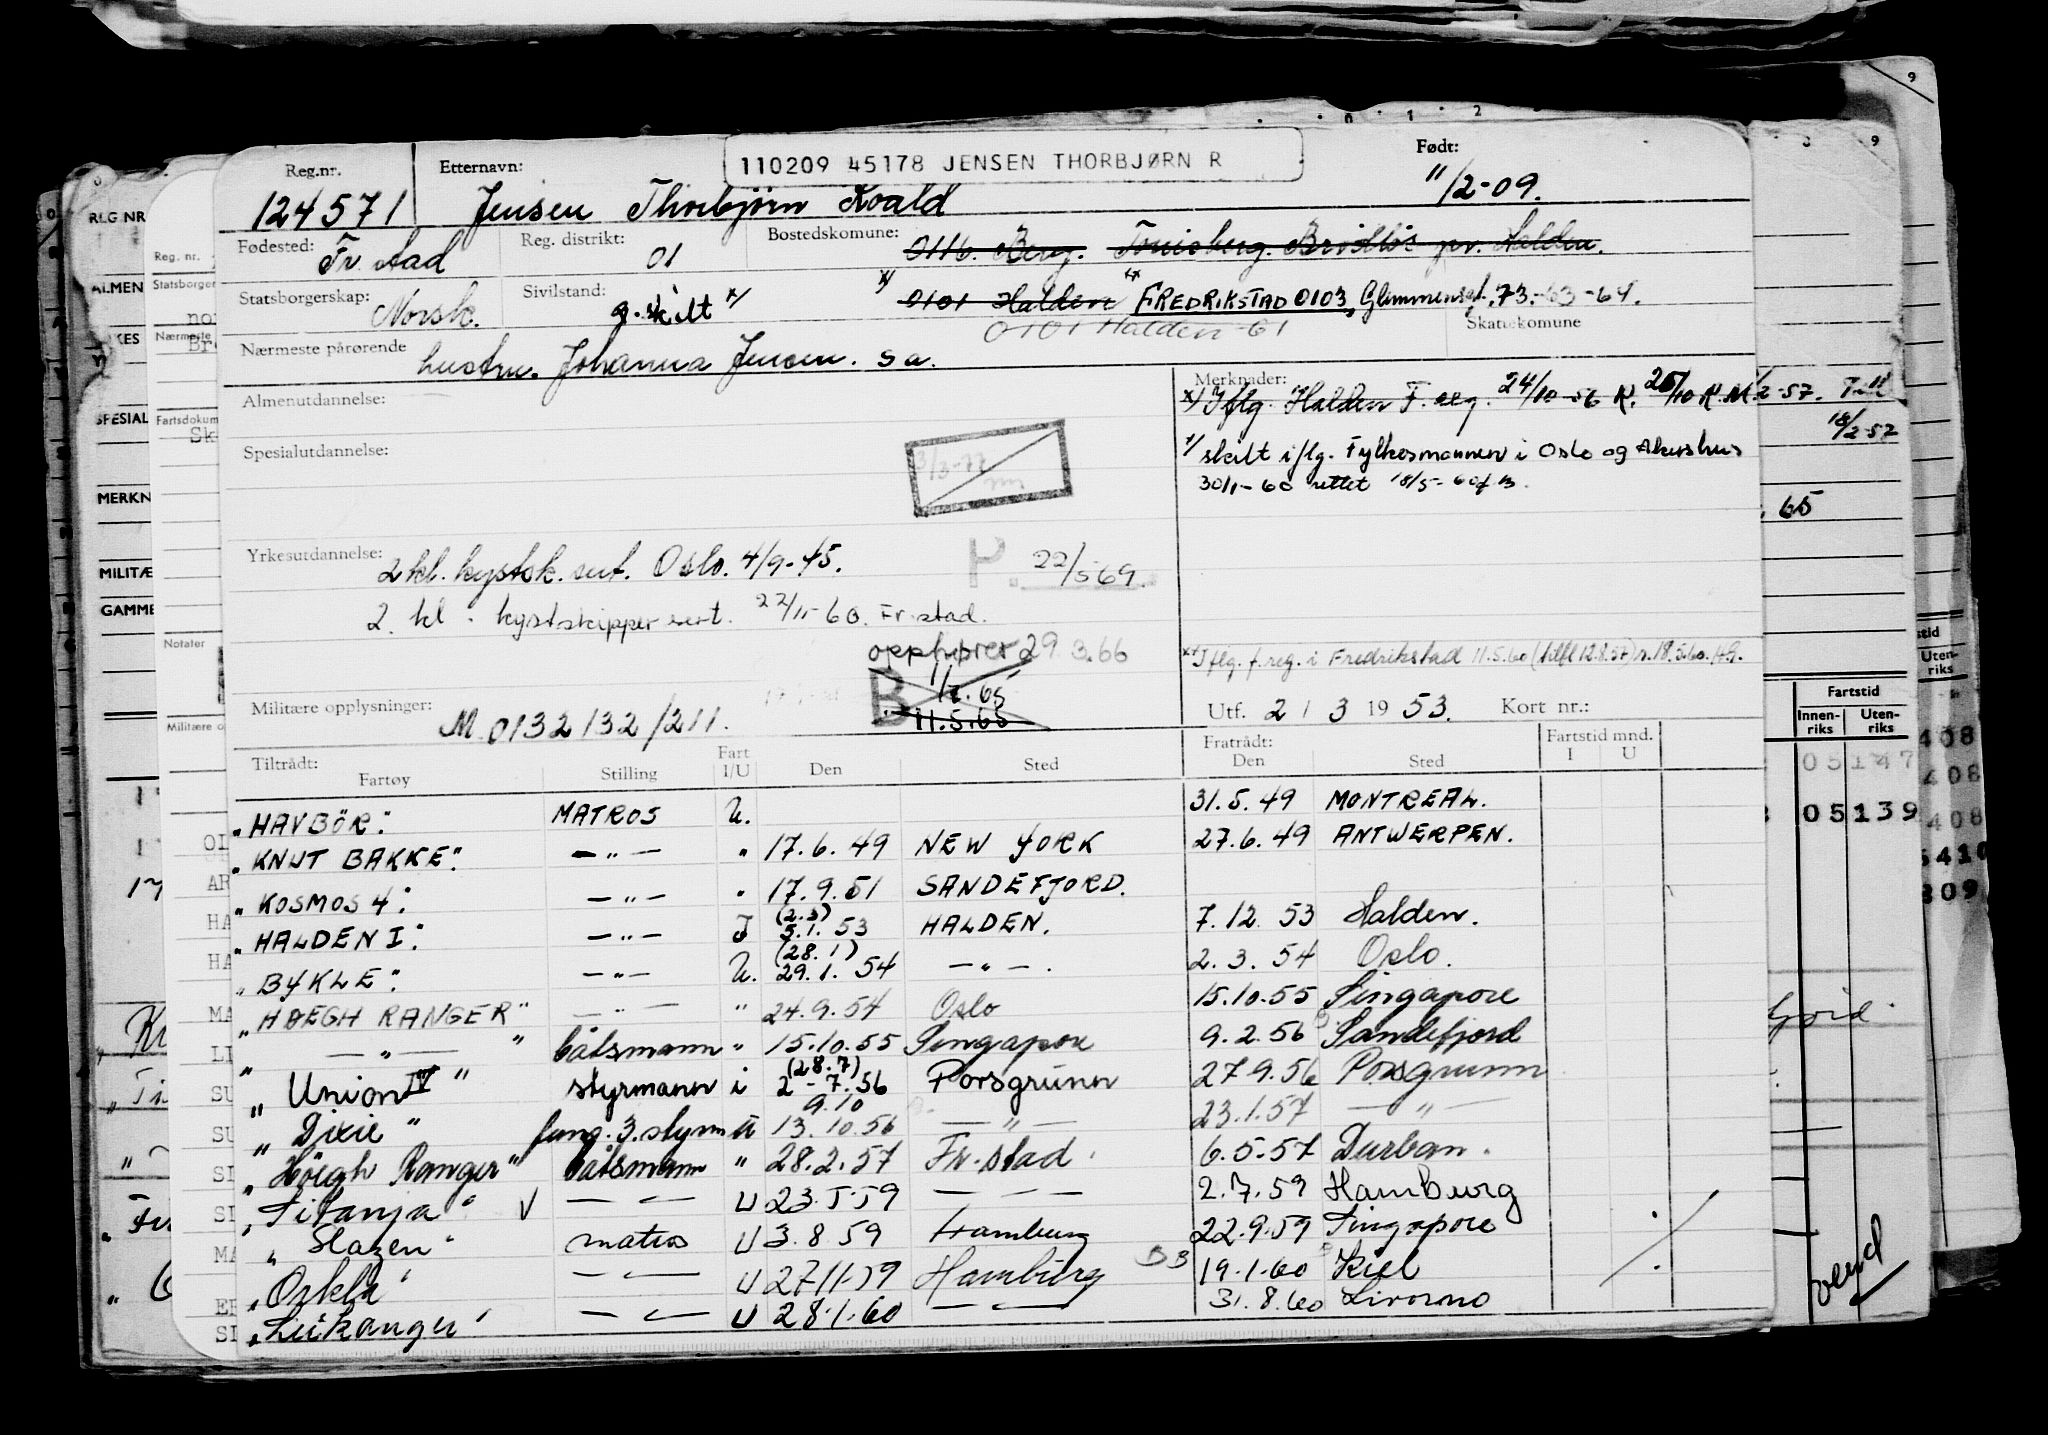 110209 45178 JENSEN THORBJØRN R
Reg.nr. Etternavn: Født:
124571 Jensen Thorbjørn Roald 11/2-09.
Fødested: Fr.stad Reg. distrikt: 01 Bostedskomune: 0116. Berg.
Statsborgerskap: Norsk. Sivilstand: g. skilt x/ x/ 0101 Halden xx FREDRIKSTAD 0103, Glemmensgt. 73.-63-64.
0101 Halden-61 Skattekomune
Nærmeste pårørende hustru. Johanna Jensen. s a.
Almenutdannelse: Merknader:
x/ Iflg. Halden F. reg. 24/10-56 K.
Spesialutdannelse:
x/ skilt iflg. Fylkesmannen i Oslo og Akershus
30/1-60 rettet 18/5-60
Yrkesutdannelse: 2 kl. kystsk. sert. Oslo. 4/9-45. P. 22/5 69.
2. kl. kystskipper sert. 22/11-60. Fr.stad.
opphører 29.3.66
xx Iflg. f.reg. i Fredrikstad 11.5.60
B. 11.5.65
Militære opplysninger: M 0132132/211. Utf. 2 / 3 19 53. Kort nr.:
Tiltrådt: Fratrådt: Fartstid mnd.
Fartøy Stilling Fart I/U Den Sted Den Sted I U
"HAVBÖR". MATROS U. 31.5.49 MONTREAL.
"KNUT BAKKE". —"— " 17.6.49 NEW YORK 27.6.49 ANTWERPEN.
"KOSMOS 4". —"— " 17.9.51 SANDEFJORD.
"HALDEN I". —"— I (2.3) 5.1.53 HALDEN. 7.12.53 Halden.
"BYKLE". —"— U. (28.1) 29.1.54 —"—. 2.3.54 Oslo.
"HØEGH RANGER" —"— " 24.9.54 Oslo 15.10.55 Singapore
" —"— " båtsmann " 15.10.55 Singapore 9.2.56 Sandefjord
"Union IV" styrmann i (28.7) 2-7.56 Porsgrunn 27.9.56 Porsgrunn
"Dixie" fung. 3. styrm u 9.10 13.10.56 —"— 23.1.57 —"—
"Höegh Ranger" båtsmann " 28.2.57 Fr.stad. 6.5-57 Durban.
"Titanja" V —"— U 23.5.59 — — — 2.7.59 Hamburg
"Slazen" matros U 3.8.59 Hamburg 22.9.59 Singapore
"Orkla" —"— U 27.11.59 Hamburg BB 19.1.60 Kiel
"Leikanger" —"— U 28.1.60 —"— 31.8.60 Livorno
REG NR
ALMEN
SPESIAL
MERKN
MILITÆ
GAMME
Reg. nr.
Statsborger
Nærmeste
Fartsdokum
Notater
Militære o
18/2-57
65
Fartstid
Innen-riks Uten-riks
05 147
05 139
408
vend